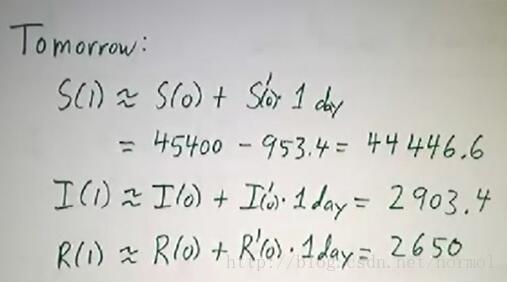 Tomorrow:
S(1) ≈ S(0) + S'(0)· 1 day
= 45400 - 953.4 = 44446.6
I(1) ≈ I(0) + I'(0)· 1 day = 2903.4
R(1) ≈ R(0) + R'(0)· 1 day = 2650
http://blog.csdn.net/normol